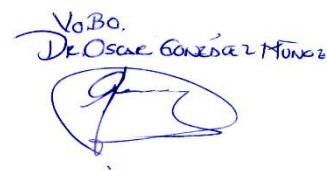 VoBo.
Dr Oscar González Muñoz